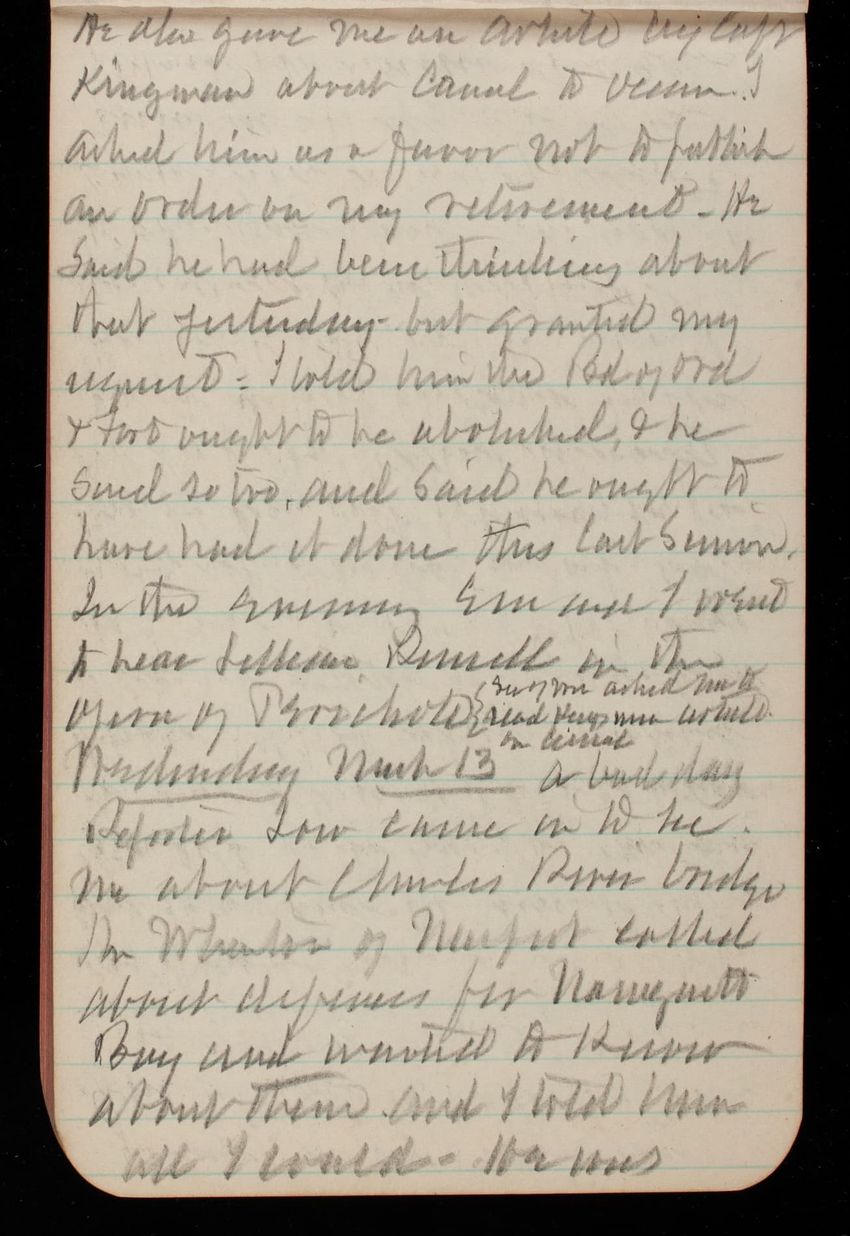 He also gave me an article by Capt
Kingman about Canal to ocean. I
asked him as a favor not to publish
an order on my retirement - He
said he had been thinking about
that yesterday - but granted my
request - I told him the Bd of Ord
& Fort ought to be abolished, & he
said so too, and said he ought to
have had it done this last Session.
In the evening Em and I went
to hear Lillian Russell in the
opera of Perichole {Sec of War asked me to
read Kingman article
on Canal
Wednesday March 13 a bad day
Reporter Low came in to see
me about Charles River bridge
Mr Wheaton of Newport called
about defenses for Narragansett
Bay and wanted to know
about them and I told him
all I could - He was